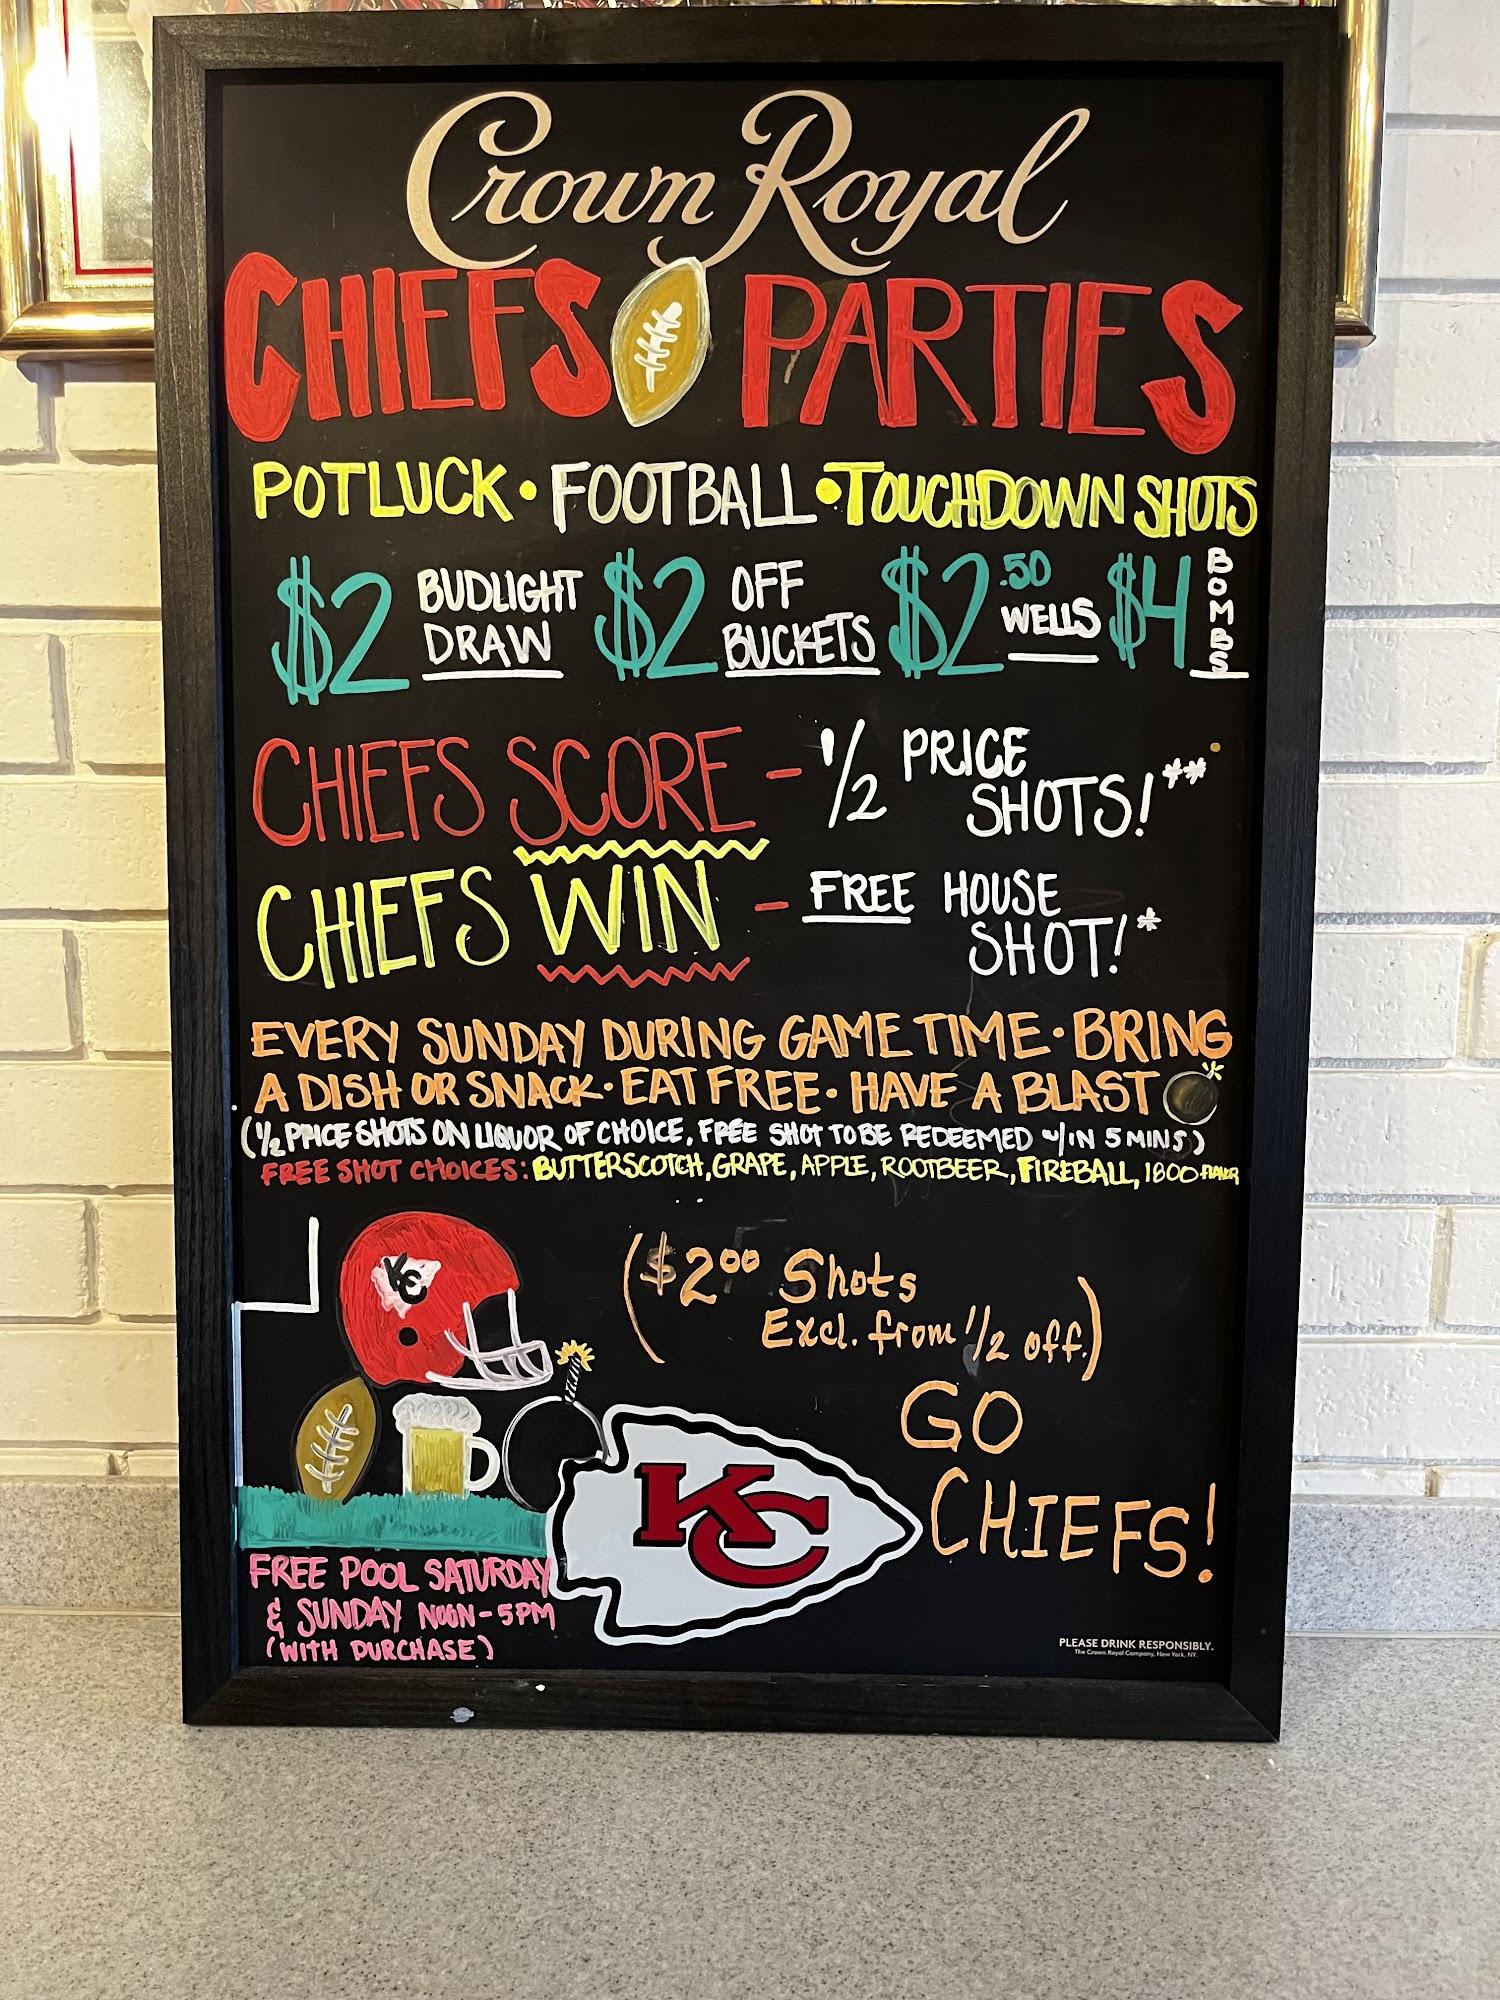 Crown Royal
CHIEFS PARTIES
POTLUCK • FOOTBALL • TOUCHDOWN SHOTS
$2 BUDLIGHT DRAW $2 OFF BUCKETS $2.50 WELLS $4 BOMBS
CHIEFS SCORE - 1/2 PRICE SHOTS!**
CHIEFS WIN - FREE HOUSE SHOT!*
EVERY SUNDAY DURING GAME TIME • BRING
A DISH OR SNACK • EAT FREE • HAVE A BLAST
(1/2 PRICE SHOTS ON LIQUOR OF CHOICE, FREE SHOT TO BE REDEEMED W/IN 5 MINS)
FREE SHOT CHOICES: BUTTERSCOTCH, GRAPE, APPLE, ROOTBEER, FIREBALL, 1800 FLAVOR
KC
($2.00 Shots
Excl. from 1/2 off.)
GO
CHIEFS!
KC
FREE POOL SATURDAY
& SUNDAY NOON - 5PM
(WITH PURCHASE)
PLEASE DRINK RESPONSIBLY.
The Crown Royal Company, New York, NY.